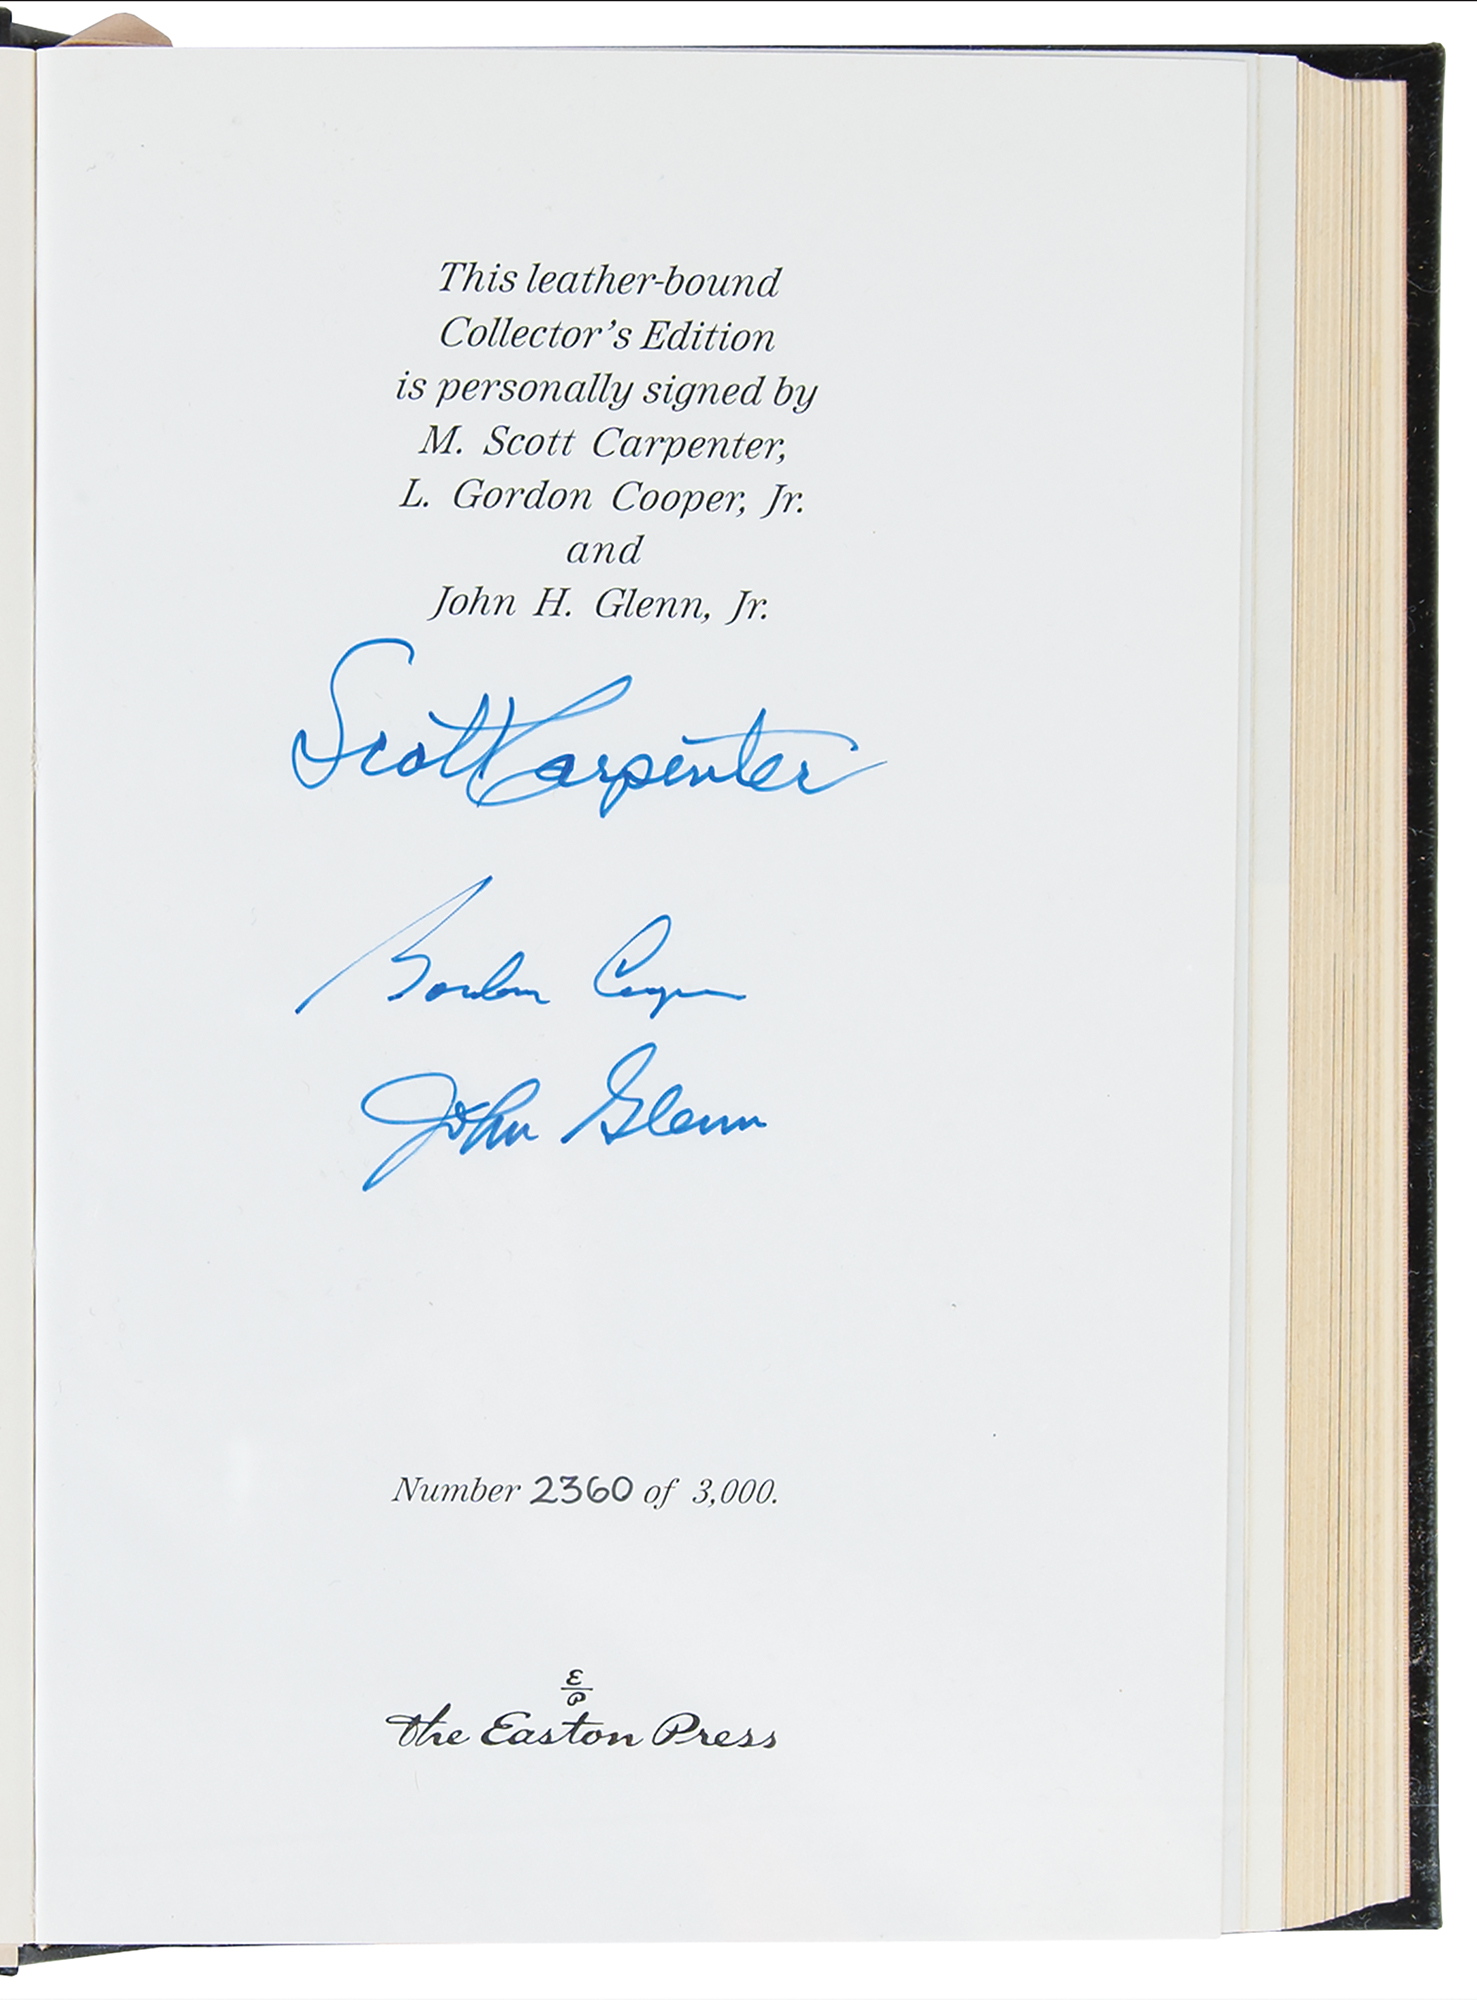 This leather-bound
Collector's Edition
is personally signed by
M. Scott Carpenter,
L. Gordon Cooper, Jr.
and
John H. Glenn, Jr.
Scott Carpenter
Gordon Cooper
John Glenn
Number 2360 of 3,000.
E
P
The Easton Press